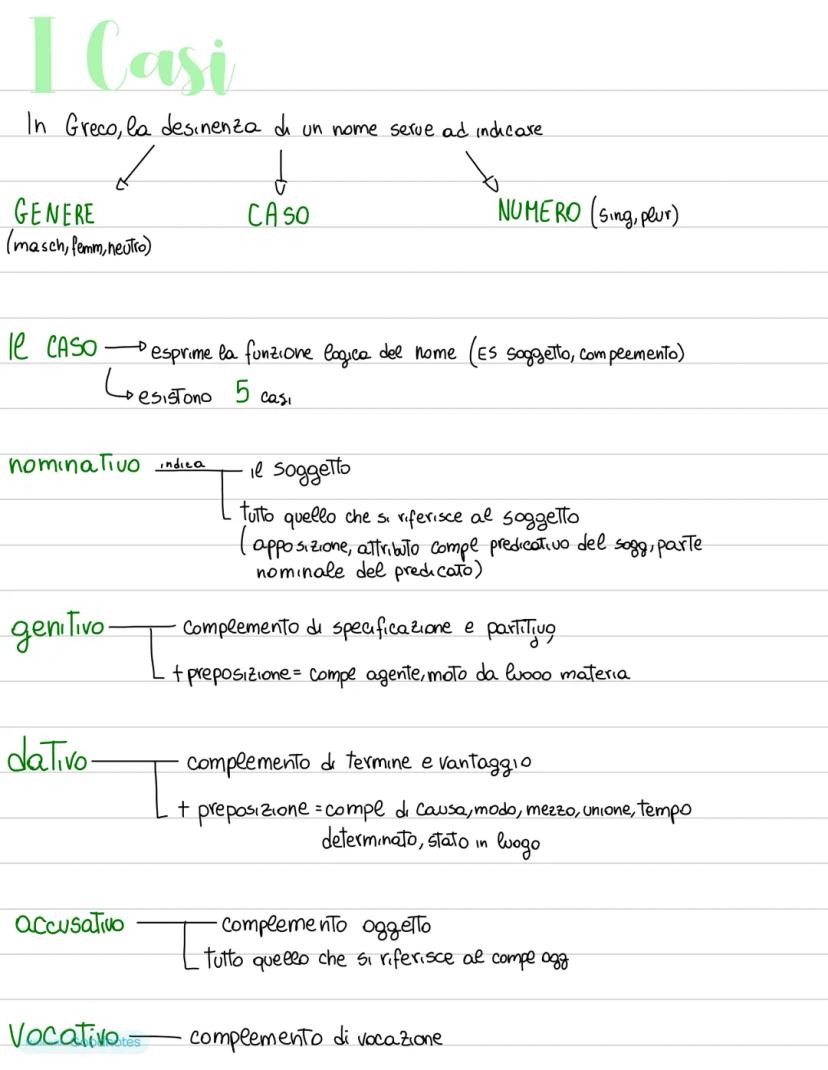 I Casi
In Greco, la desinenza di un nome serve ad indicare
GENERE CASO NUMERO (sing, plur)
(masch, femm, neutro)
Il CASO esprime la funzione logica del nome (ES soggetto, complemento)
esistono 5 casi
nominativo indica il soggetto
tutto quello che si riferisce al soggetto
(apposizione, attributo compl predicativo del sogg, parte
nominale del predicato)
genitivo complemento di specificazione e partitivo
+ preposizione = compl agente, moto da luogo materia
dativo complemento di termine e vantaggio
+ preposizione = compl di causa, modo, mezzo, unione, tempo
determinato, stato in luogo
accusativo complemento oggetto
tutto quello che si riferisce al compl ogg
Vocativo complemento di vocazione